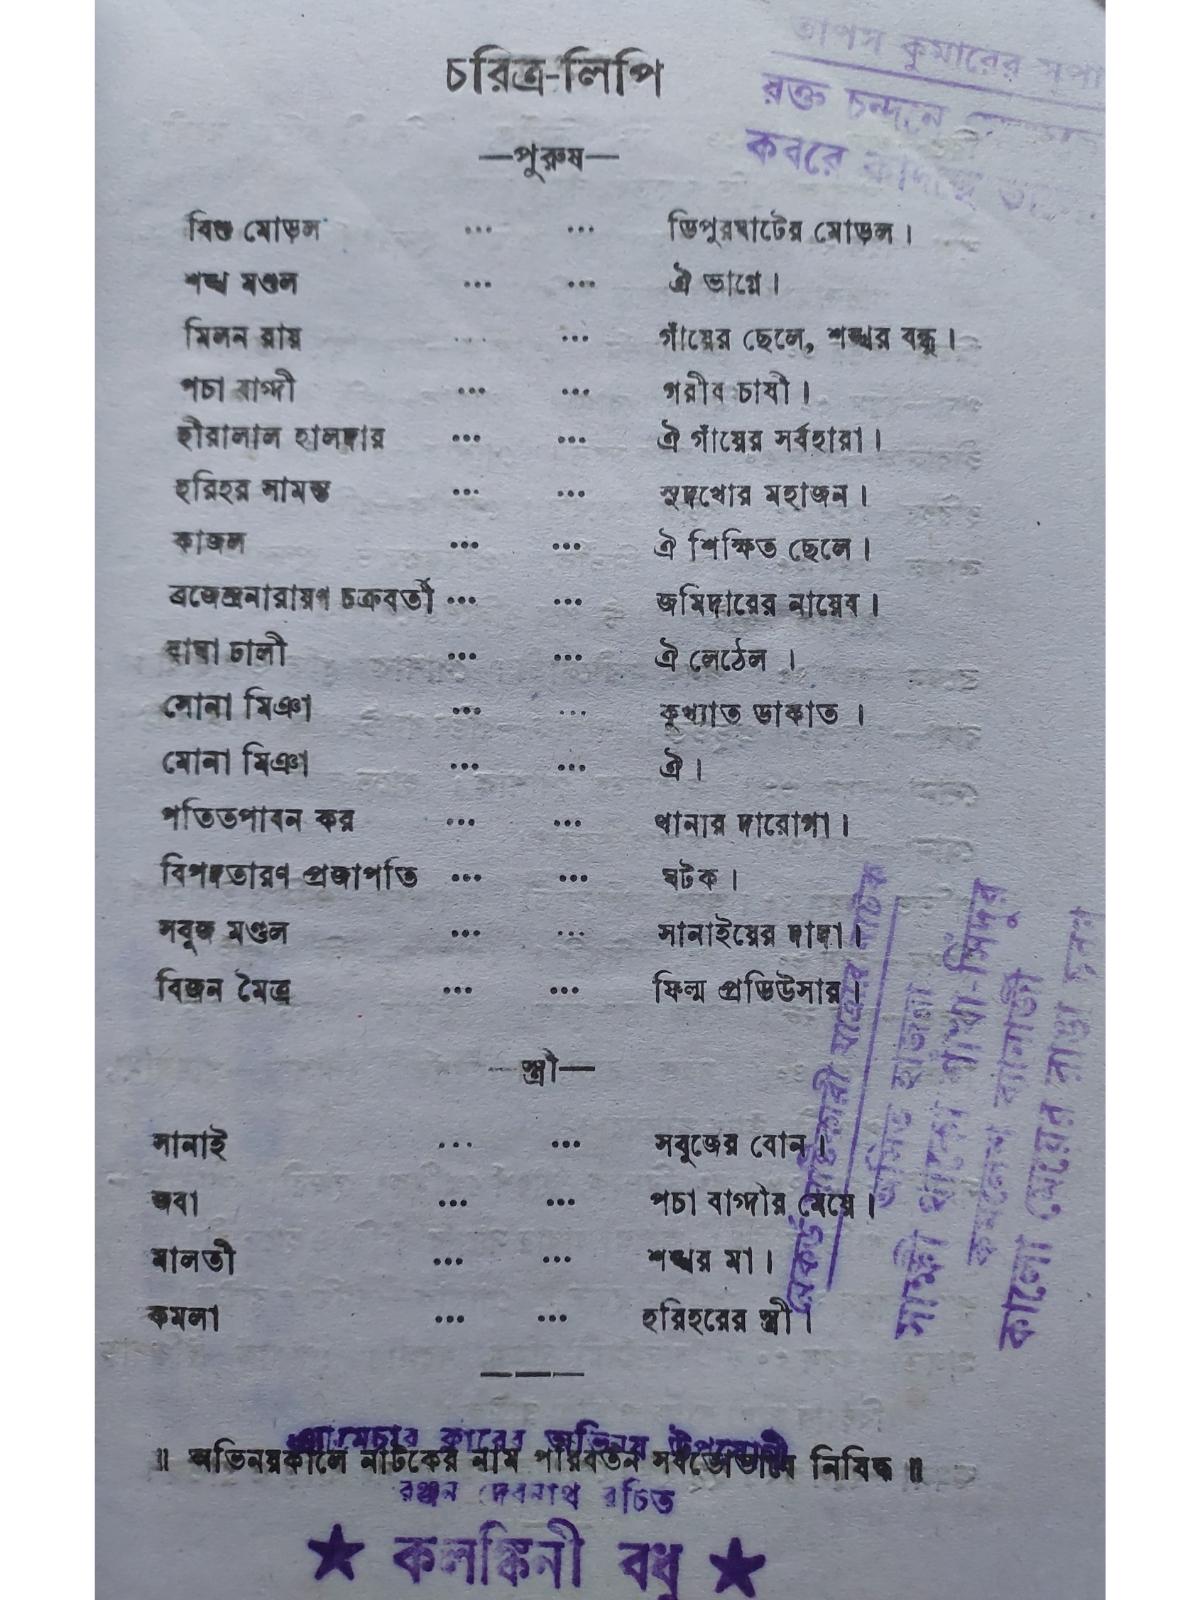 চরিত্র-লিপি
তাপস কুমারের
রক্ত চন্দনে
কবরে
—পুরুষ—
বিশু মোড়ল ... ... ডিপুরঘাটের মোড়ল।
শঙ্খ মণ্ডল ... ... ঐ ভাগ্নে।
মিলন রায় ... ... গাঁয়ের ছেলে, শঙ্খর বন্ধু।
পচা বাগ্দী ... ... গরীব চাষী।
হীরালাল হালদার ... ... ঐ গাঁয়ের সর্বহারা।
হরিহর সামন্ত ... ... সুদখোর মহাজন।
কাজল ... ... ঐ শিক্ষিত ছেলে।
ব্রজেন্দ্রনারায়ণ চক্রবর্তী ... ... জমিদারের নায়েব।
বাঘা ঢালী ... ... ঐ লেঠেল ।
সোনা মিঞা ... ... কুখ্যাত ডাকাত ।
মোনা মিঞা ... ... ঐ।
পতিতপাবন কর ... ... থানার দারোগা।
বিপদতারণ প্রজাপতি ... ... ঘটক।
সবুজ মণ্ডল ... ... সানাইয়ের দাদা।
বিজন মৈত্র ... ... ফিল্ম প্রডিউসার।
—স্ত্রী—
সানাই ... ... সবুজের বোন।
জবা ... ... পচা বাগ্দীর মেয়ে।
মালতী ... ... শঙ্খর মা।
কমলা ... ... হরিহরের স্ত্রী।
রেকর্ড সৃষ্টিকারী যাত্রার নাটক
সাক্ষী থাকো শাঁখা-সিঁদুর
কমলেশ ব্যানার্জী
কালো মেয়ের রাঙা চরণ
অভিনয় উপযোগী
॥ অভিনয়কালে নাটকের নাম পরিবর্তন সর্বতোভাবে নিষিদ্ধ ॥
রঞ্জন দেবনাথ রচিত
★ কলঙ্কিনী বধূ ★